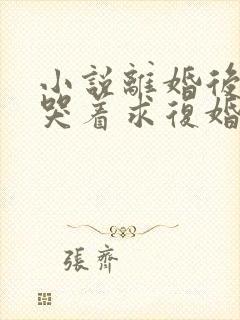 小説離婚後
哭着求復婚
張齊